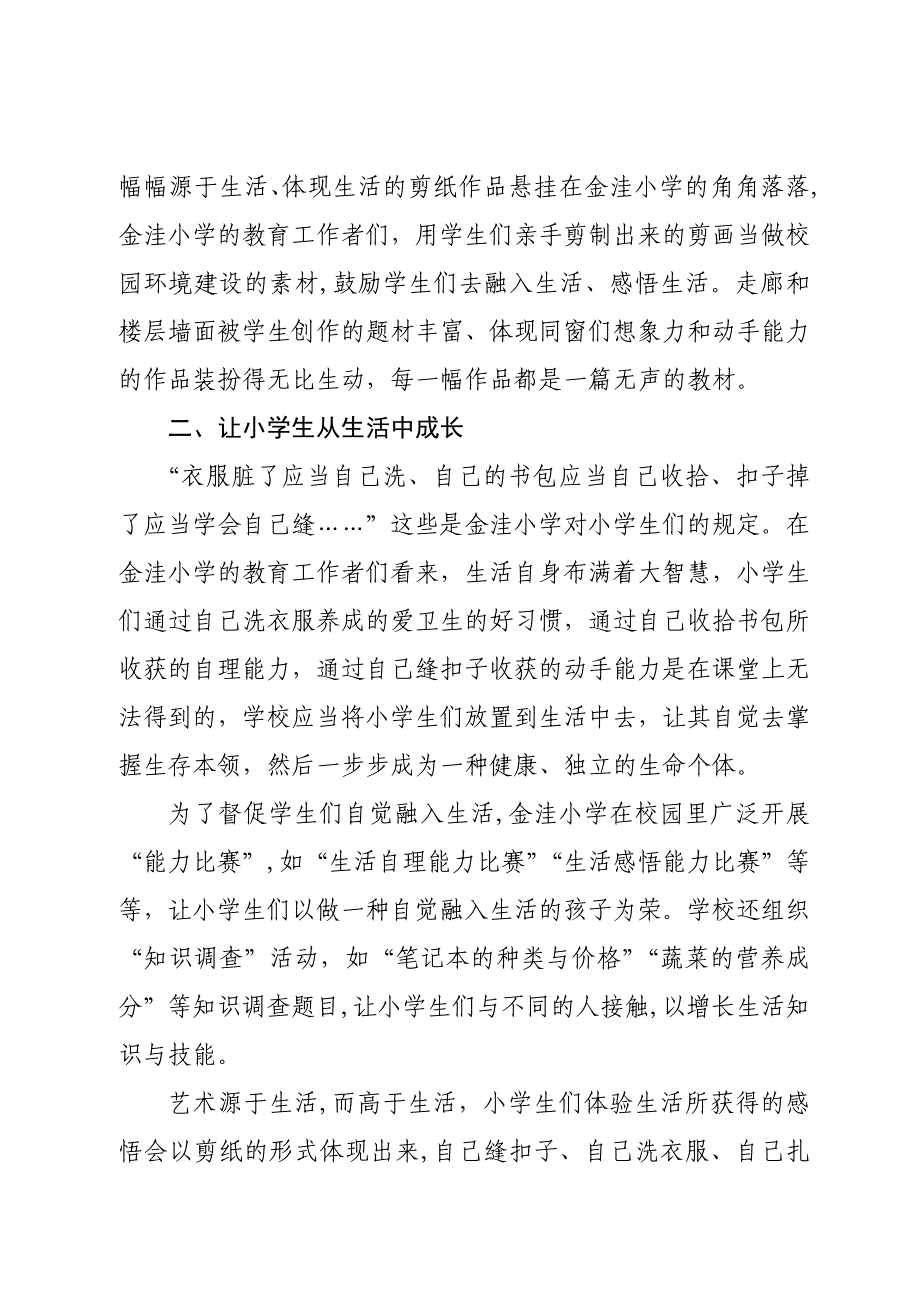 幅幅源于生活、体现生活的剪纸作品悬挂在金洼小学的角角落落,
金洼小学的教育工作者们，用学生们亲手剪制出来的剪画当做校
园环境建设的素材,鼓励学生们去融入生活、感悟生活。走廊和
楼层墙面被学生创作的题材丰富、体现同窗们想象力和动手能力
的作品装扮得无比生动，每一幅作品都是一篇无声的教材。
二、让小学生从生活中成长
“衣服脏了应当自己洗、自己的书包应当自己收拾、扣子掉
了应当学会自己缝……”这些是金洼小学对小学生们的规定。在
金洼小学的教育工作者们看来，生活自身布满着大智慧，小学生
们通过自己洗衣服养成的爱卫生的好习惯，通过自己收拾书包所
收获的自理能力，通过自己缝扣子收获的动手能力是在课堂上无
法得到的，学校应当将小学生们放置到生活中去，让其自觉去掌
握生存本领，然后一步步成为一种健康、独立的生命个体。
为了督促学生们自觉融入生活,金洼小学在校园里广泛开展
“能力比赛”,如“生活自理能力比赛”“生活感悟能力比赛”等
等，让小学生们以做一种自觉融入生活的孩子为荣。学校还组织
“知识调查”活动，如“笔记本的种类与价格”“蔬菜的营养成
分”等知识调查题目,让小学生们与不同的人接触,以增长生活知
识与技能。
艺术源于生活,而高于生活，小学生们体验生活所获得的感
悟会以剪纸的形式体现出来,自己缝扣子、自己洗衣服、自己扎